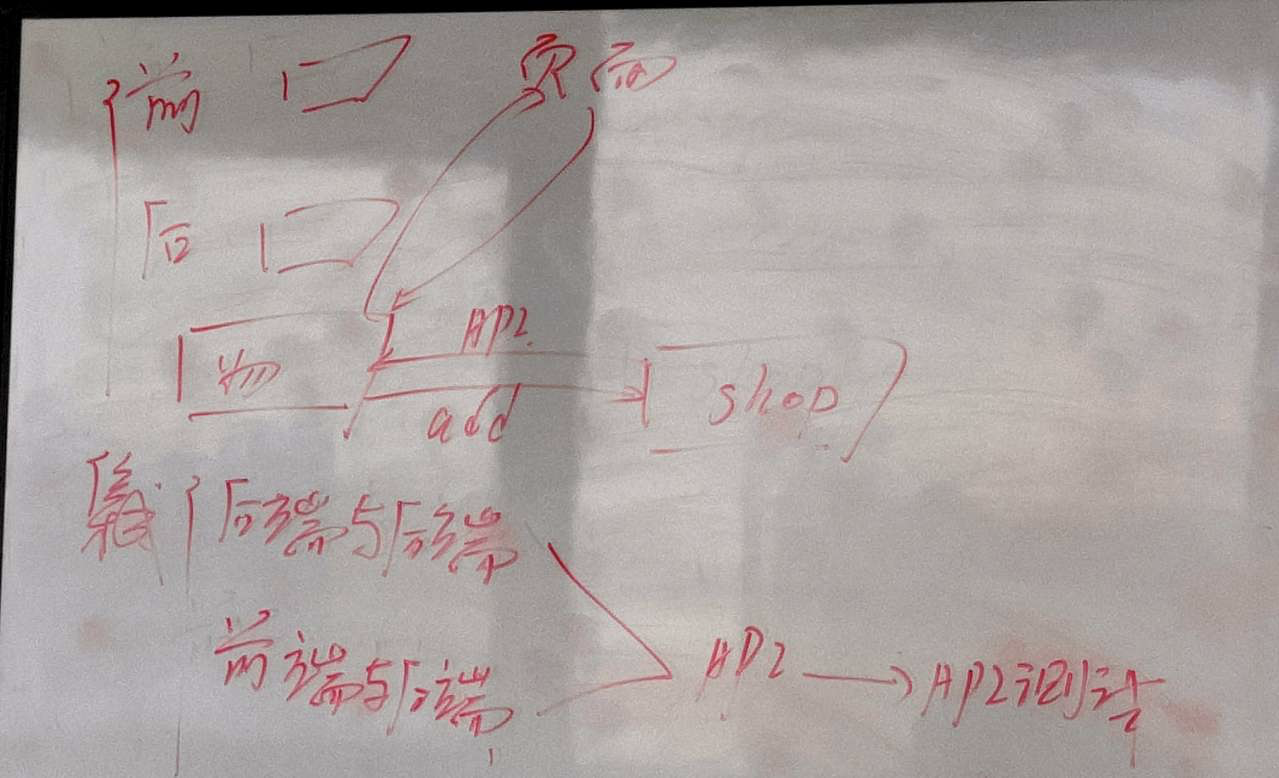 前 页面
后
物 API shop
add
后端与后端
前端与后端 API → API测试